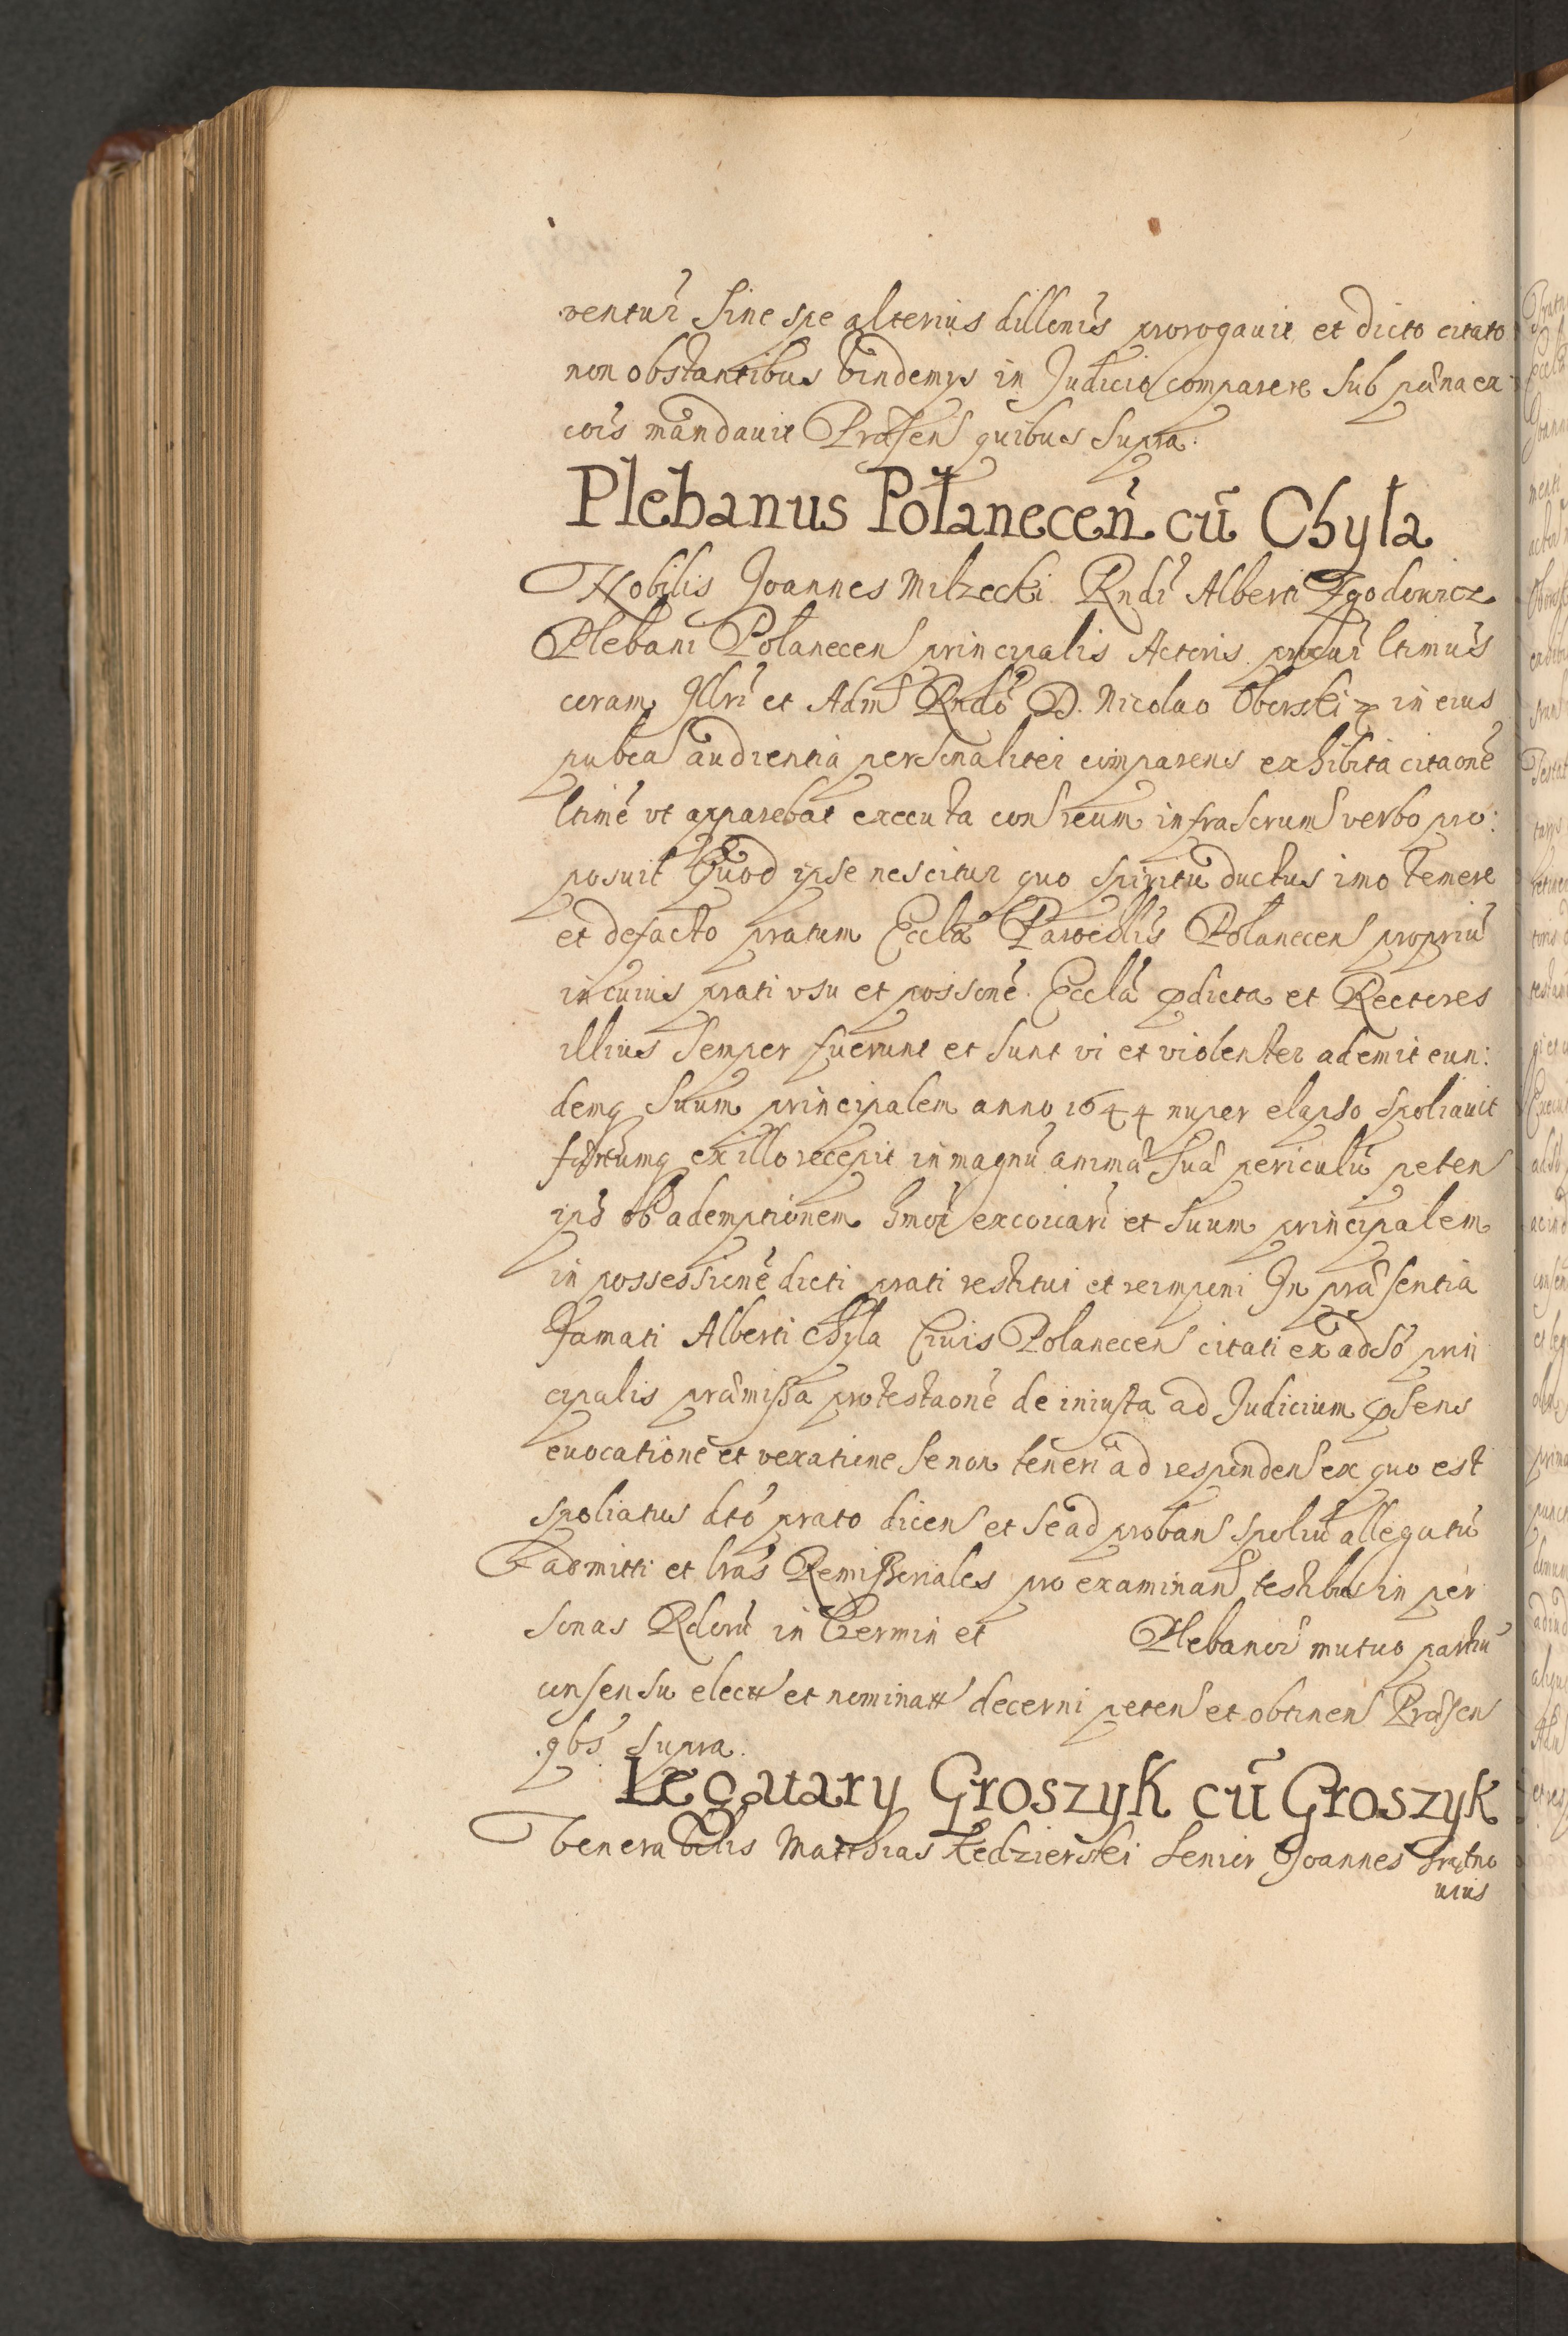 ventur̃ sine spe alterius dillon̄is prorogauit et dicto citato
non obstantibus vindemys in Judicio comparere sub pœna ex
cōis mandauit Præsen quibus supra.
Plebanus Połanecen̄ cū Chyla
Nobilis Joannes Milzecki Rndi Alberti Zgodowicz
Plebani Połanecen principalis Actoris procur̃ ltimus
coram Illri et Adm Rndo D. Nicolao Oborski in eius
publca audientia personaliter comparens exhibita citaonē
ltimē vt apparebat executa con reum infrascrum verbo pro:
posuit Quod ipse nescitur quo spiritu ductus imo temere
et defacto pratum Eccla Parochlis Polanecen propriū
in cuius prati vsu et possonē Eccla pdicta et Rectores
illius semper fuerunt et sunt vi et violenter ademit eun:
demq suum principalem anno 1644 nuper elapso spoliauit
fructumq ex illo recepit in magnū animæ suæ periculū peten
ips ob ademptionem hmōi excoicari et suum principalem
in possessionē dicti prati restitui et reimponi In præsentia
Famati Alberti Chyla Ciuis Polanecen citati ex adso prin
cipalis præmissa protestaonē de iniusta ad Judicium psens
euocationē et vexatione se non teneri ad responden ex quo est
spoliatus dto prato dicens et se ad proban spoliū allegatū
admitti et lras Remissoriales pro examinan testibus in per
sonas Rdorū in Czermin et Plebanor̃ mutuo partiū
consensu electt et nominatt decerni peten et obtinen Præsen
qbs supra.
Legatary Groszyk cū Groszyk
Venerabilis Matthias Kedzierski Senior Joannes
uius